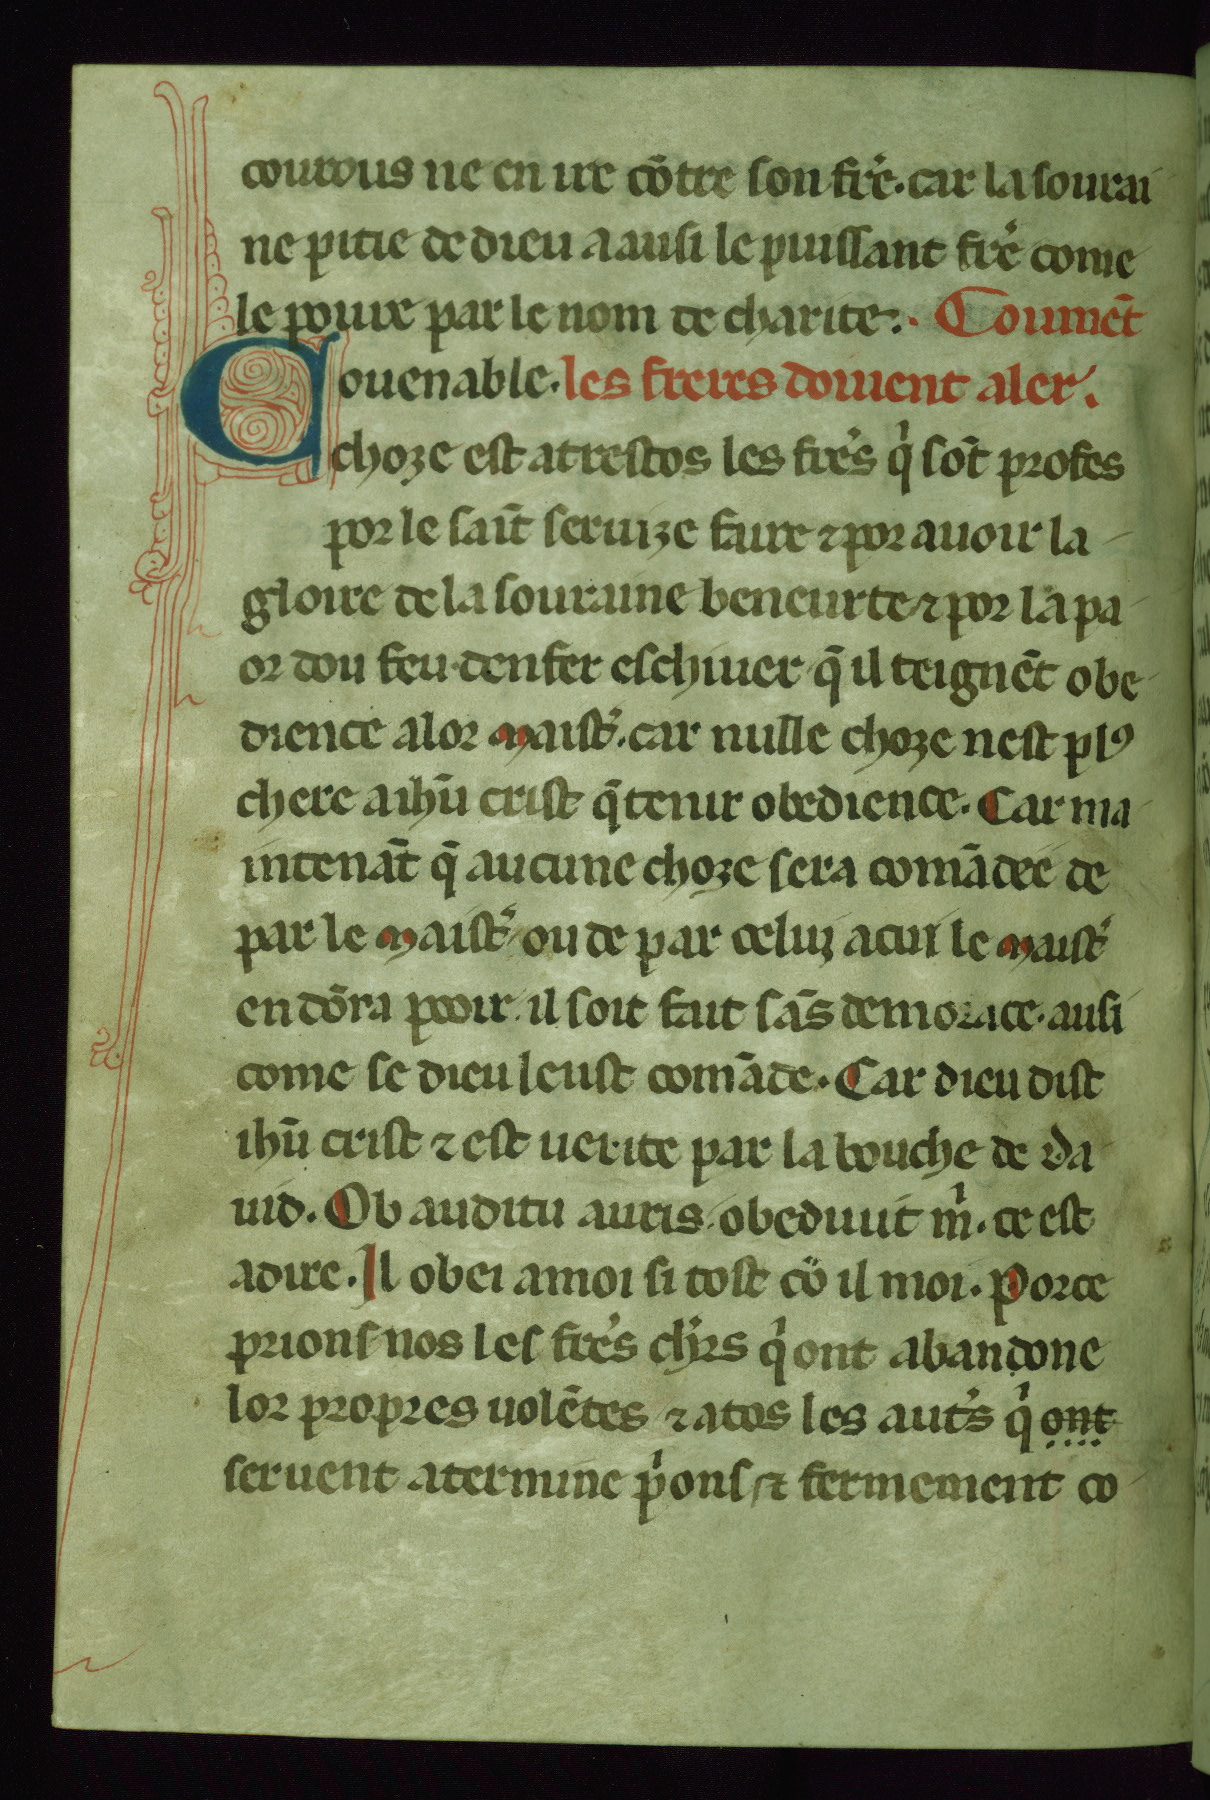 courous ne en ire cōtre son frē. car la sourai
ne pitie de dieu a ausi le puissant frē come
le poure par le nom de charite. Coumēt
Couenable. les freres doiuent aler.
choze est atrestos les frēs q̄ sōt profes
por le saīt seruize faire ⁊ por auoir la
gloire de la souraine beneurte ⁊ por la pa
or dou feu denfer eschiuer q̄ il teignēt obe
dience a lor maist̄. car nulle choze nest plꝰ
chere a ihū crist q̄ tenir obedience. Car ma
intenāt q̄ aucune choze sera comādee de
par le maist̄ ou de par celui a cui le maist̄
en dōra pooir. il soit fait sās demorāce. ausi
come se dieu leust comāde. Car dieu dist
ihū crist ⁊ est uerite par la bouche de da
uid. Ob auditu auris obediuit m̄. ce est
a dire. Il obei a moi si tost cō il moi. Porce
prions nos les frēs chr̄s q̄ ont abandone
lor propres uolētes ⁊ a tos les aut̄s q̄ ont
seruent a termine p̄ons ⁊ fermement co